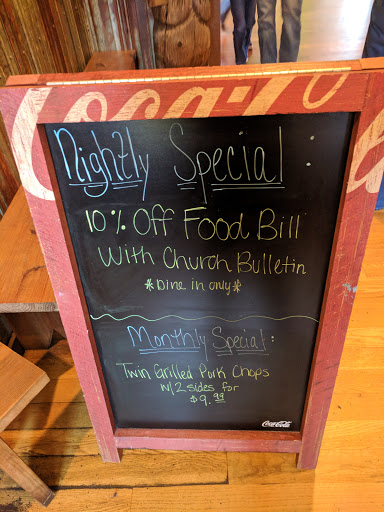 Coca-Co
Nightly Special:
10% Off Food Bill
With Church Bulletin
*Dine in only*
Monthly Special:
Twin Grilled Pork Chops
w/2 sides for
$9.99
Coca-Cola